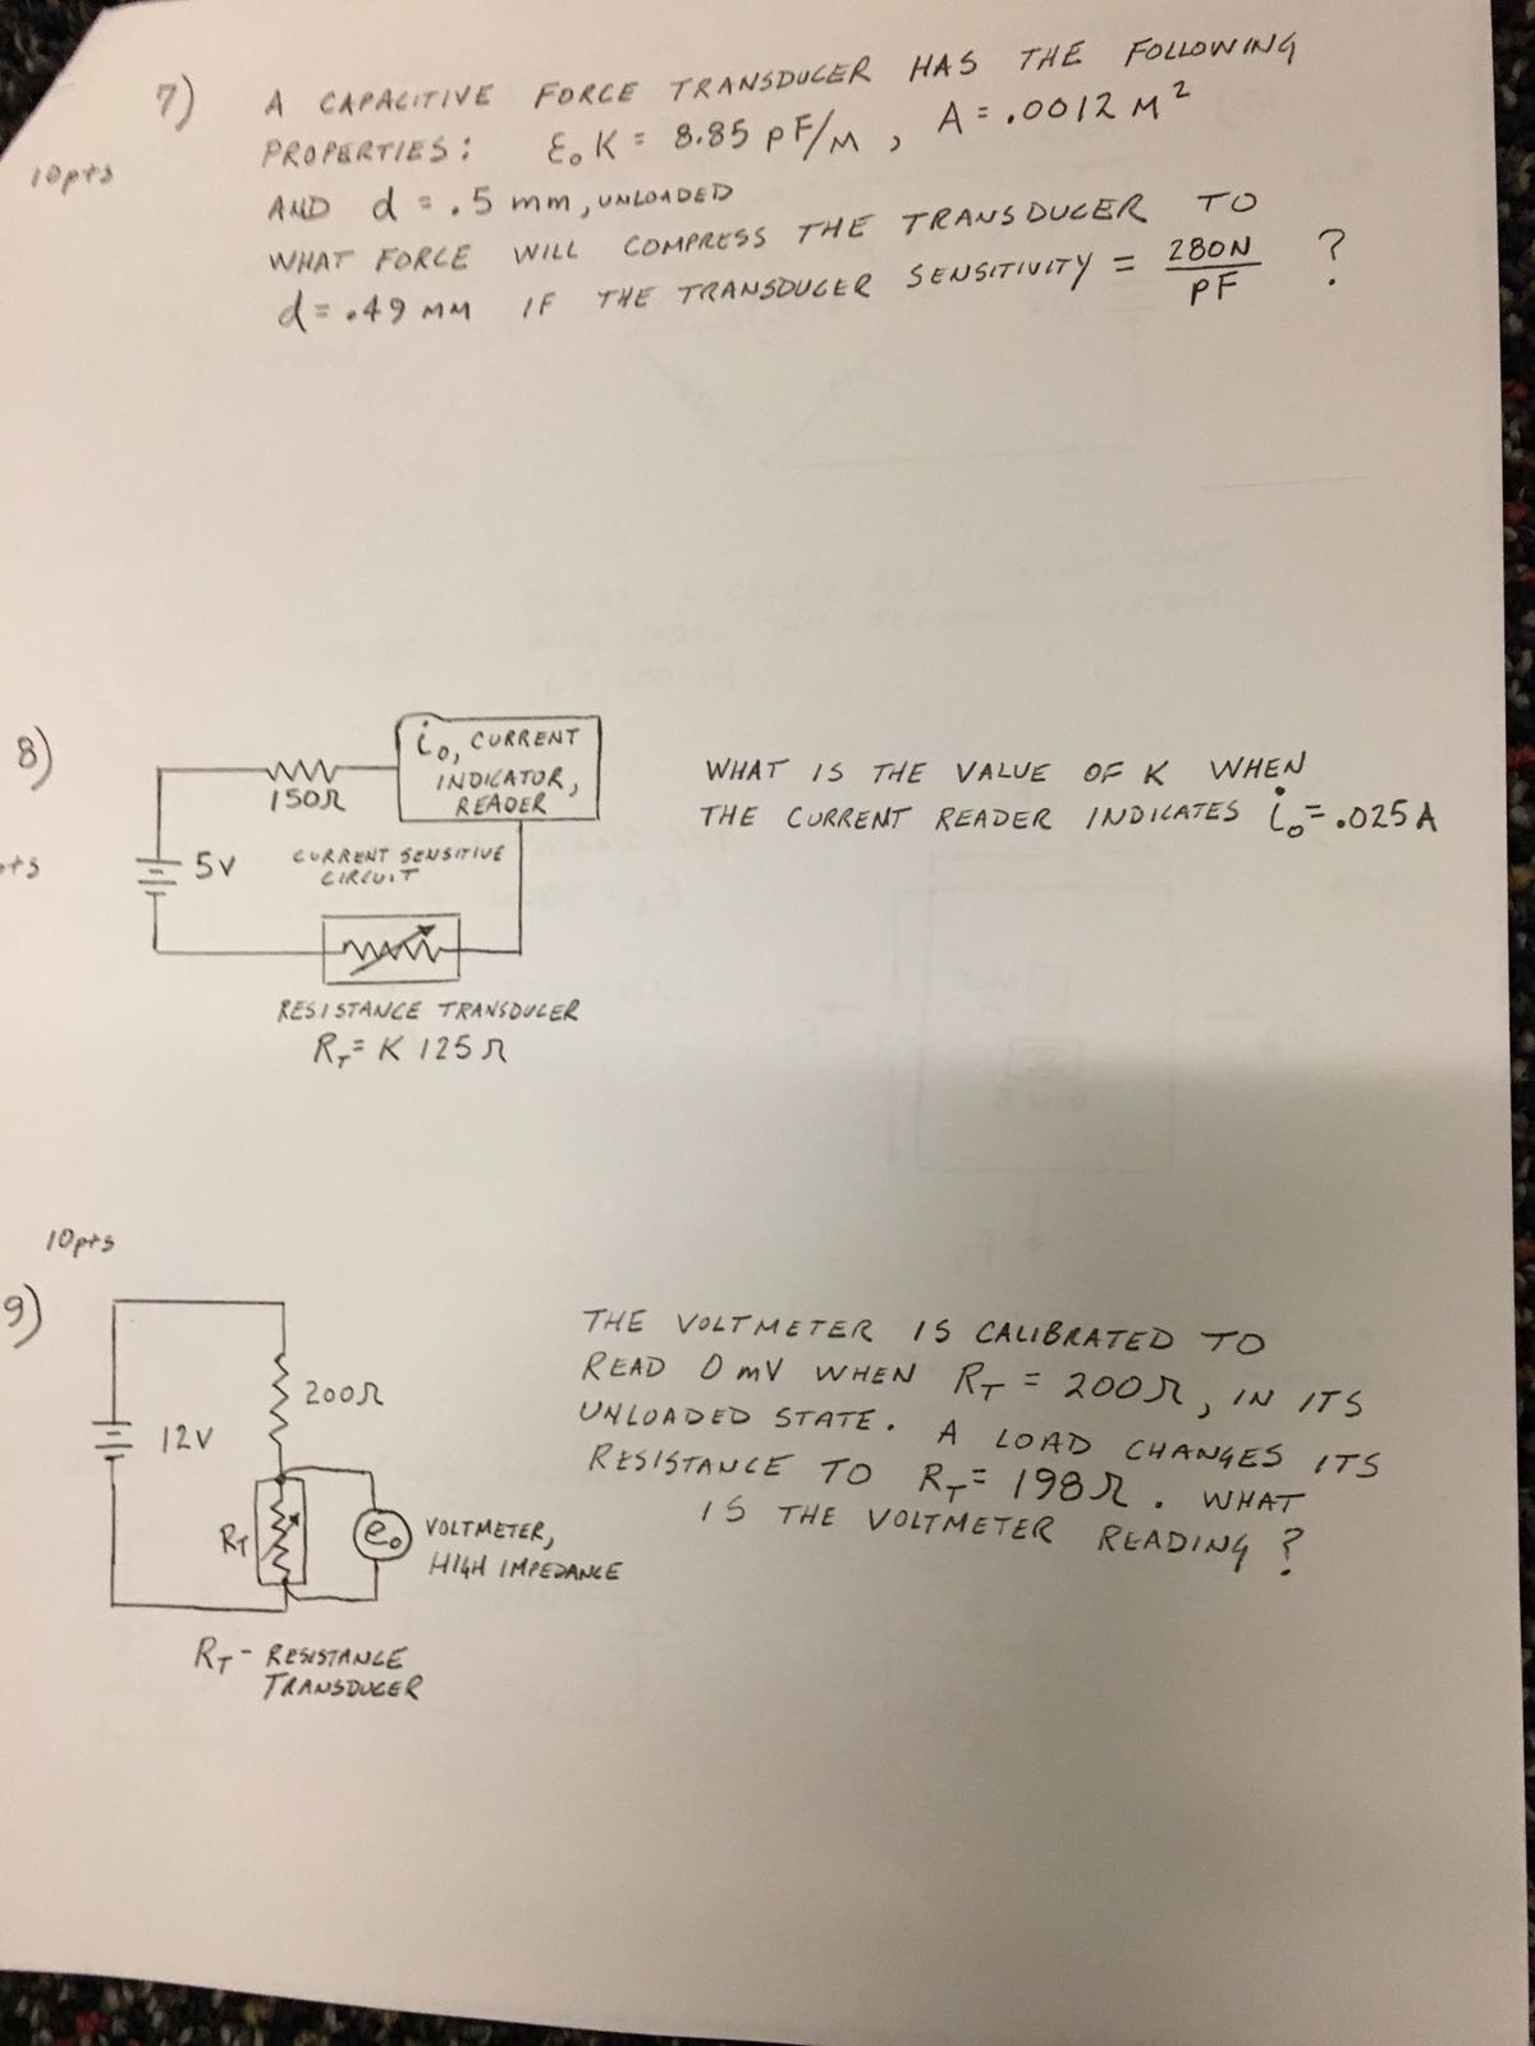 7) A CAPACITIVE FORCE TRANSDUCER HAS THE FOLLOWING
PROPERTIES: ε₀K = 8.85 pF/M, A = .0012 M²
10pts
AND d = .5 mm, UNLOADED
WHAT FORCE WILL COMPRESS THE TRANSDUCER TO
d = .49 MM IF THE TRANSDUCER SENSITIVITY = 280N/PF ?
8)
i₀, CURRENT
INDICATOR,
READER
150Ω
WHAT IS THE VALUE OF K WHEN
THE CURRENT READER INDICATES i₀ = .025A
5V
CURRENT SENSITIVE
CIRCUIT
RESISTANCE TRANSDUCER
R_T = K 125Ω
10pts
9)
200Ω
12V
R_T
e₀
VOLTMETER,
HIGH IMPEDANCE
R_T - RESISTANCE
TRANSDUCER
THE VOLTMETER IS CALIBRATED TO
READ 0 mV WHEN R_T = 200Ω, IN ITS
UNLOADED STATE. A LOAD CHANGES ITS
RESISTANCE TO R_T = 198Ω. WHAT
IS THE VOLTMETER READING ?